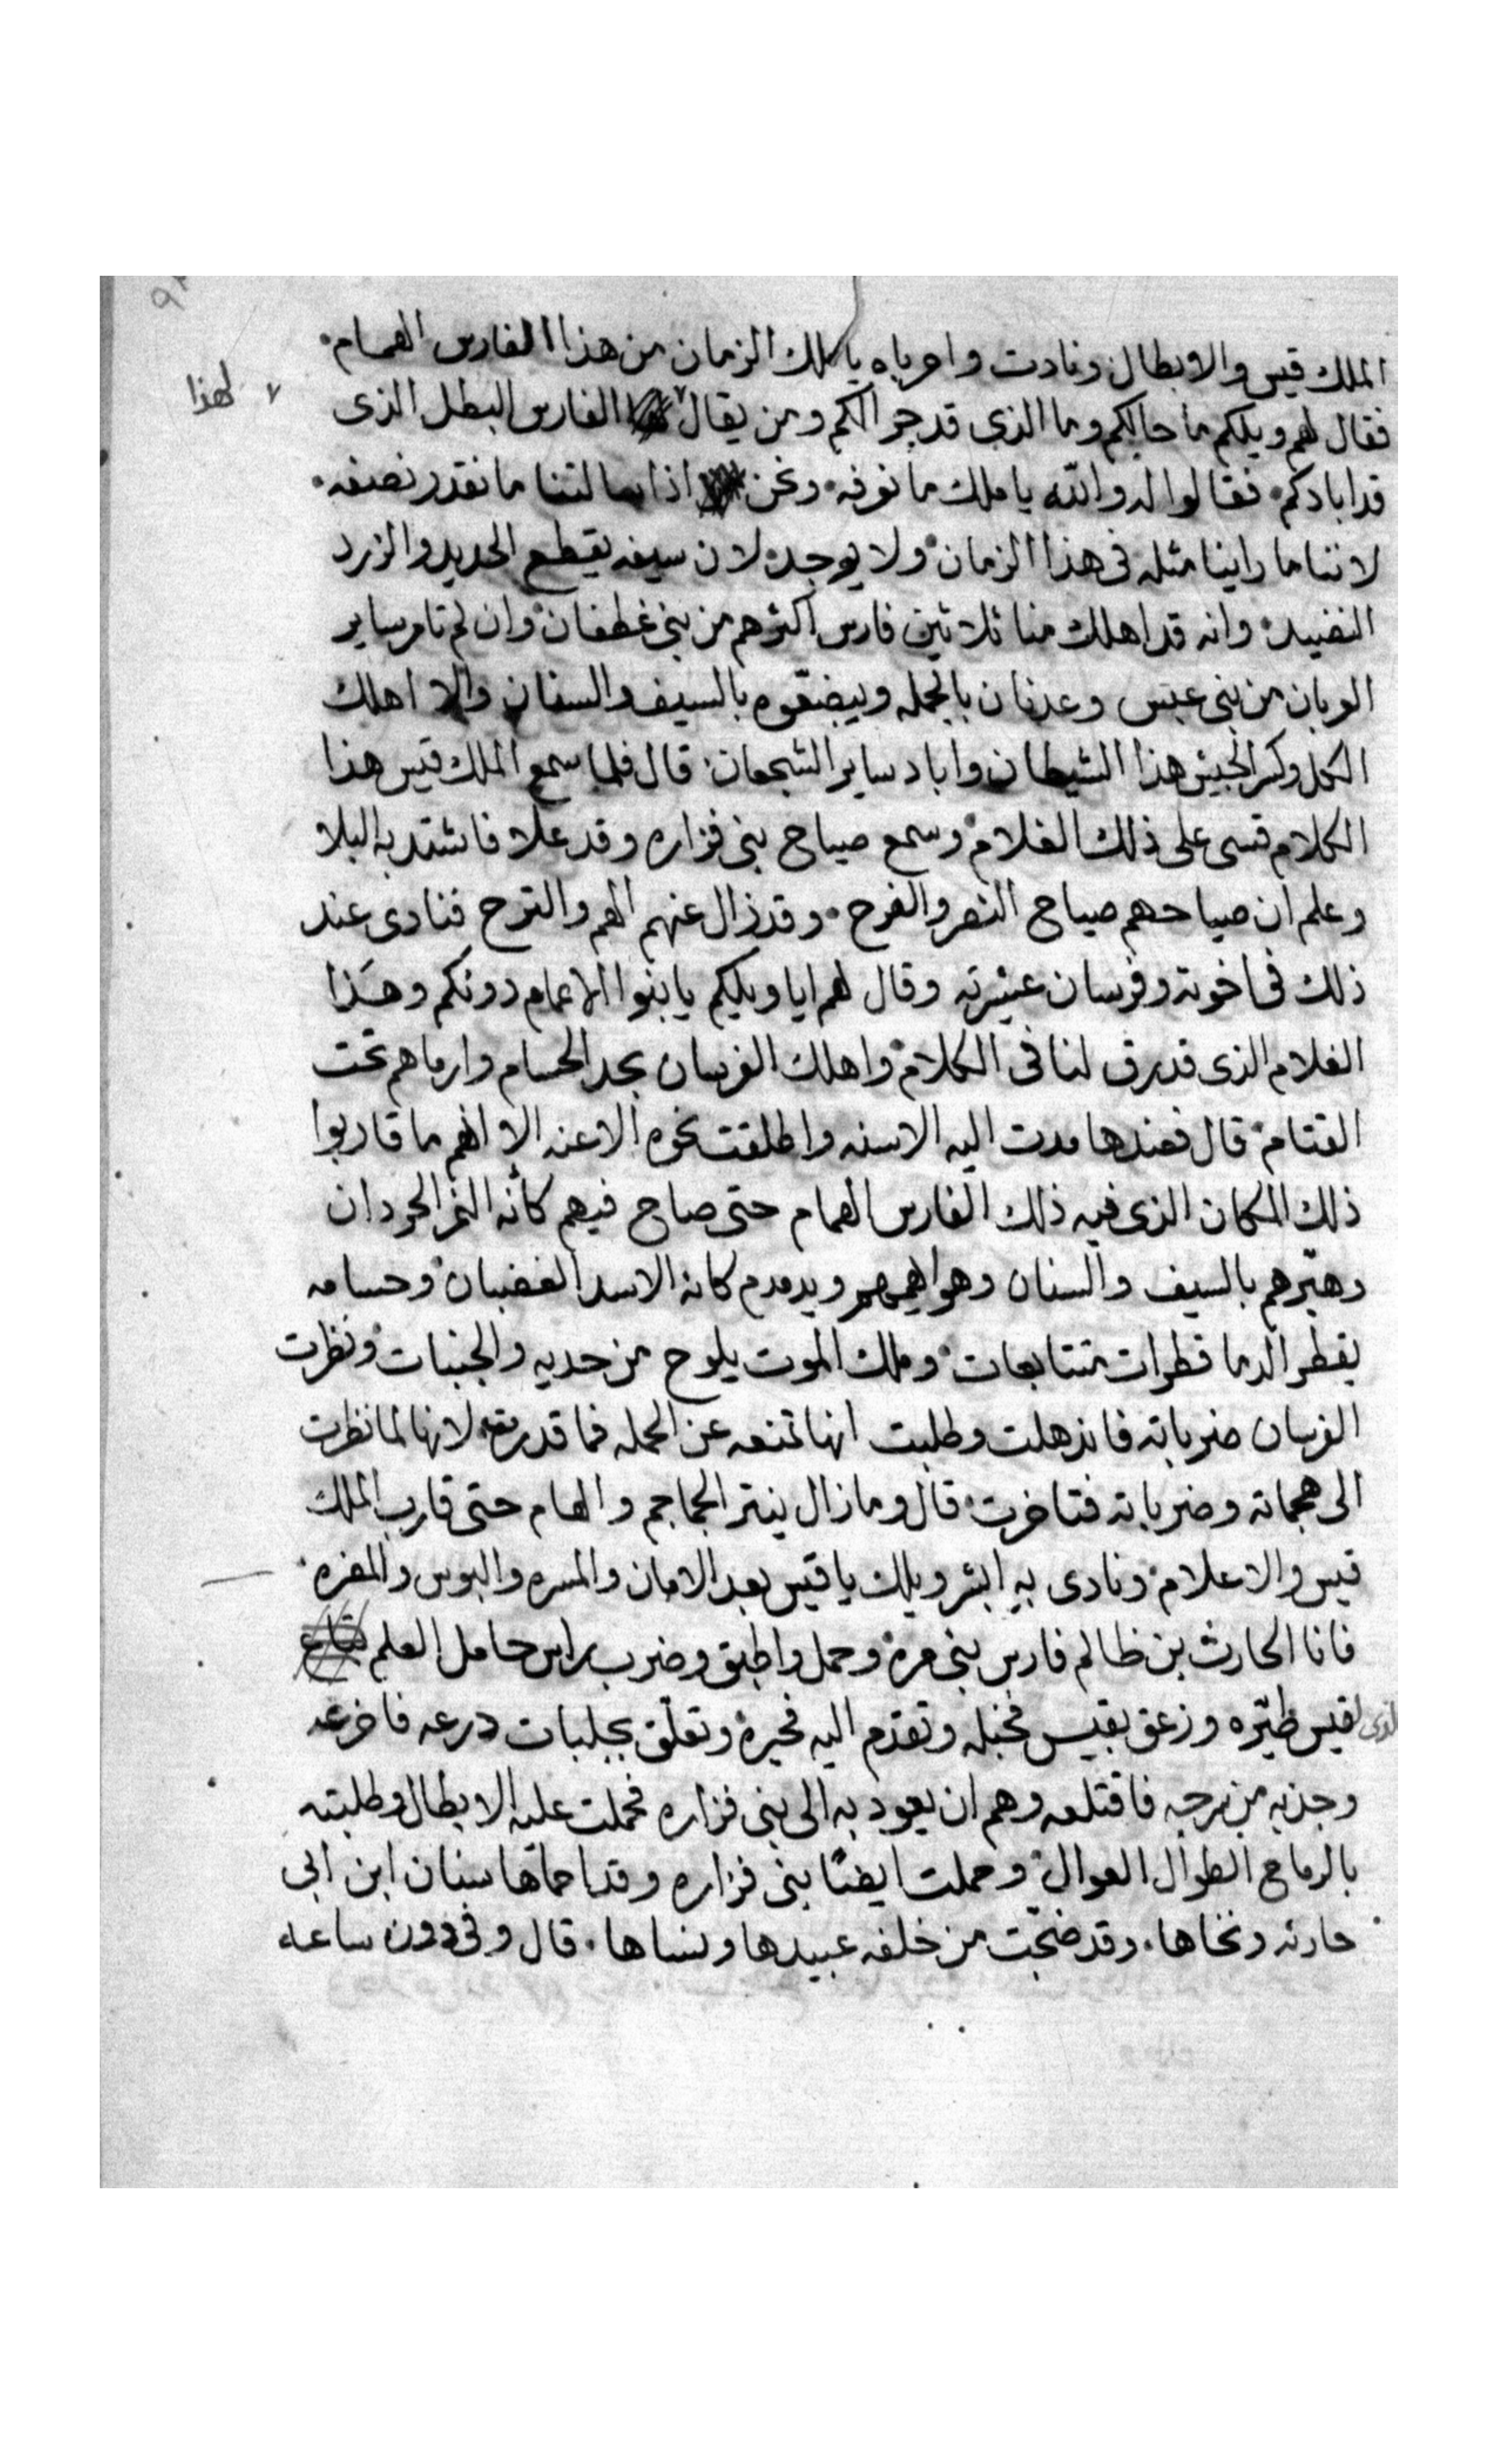 الملك قيس والابطال ونادت واحرباه يا ملك الزمان من هذا الفارس الهمام
فقال لهم ويلكم ما حالكم وما الذي قد جرالكم ومن يقال لهذا الفارس البطل الذى
قد ابادكم فقالوا له والله يا ملك ما نعرفه ونحن اذا سالتنا ما نقدر نصفه
لاننا ما راينا مثله فى هذا الزمان ولا يوجد لان سيفه يقطع الحديد والزرد
النضيد وانه قد اهلك منا ثلاثين فارس اكثرهم من بنى غطفان وان لم تامر ساير
العربان من بنى عبس وعدنان بالحمله ويبضعوه بالسيف والسنان والا اهلك
الكل وكسر الجيش هذا الشيطان واباد ساير الشجعان قال فلما سمع الملك قيس هذا
الكلام قسى على ذلك الغلام وسمع صياح بنى فزاره وقد علا فاشتد به البلا
وعلم ان صياحهم صياح النصر والفرح وقد زال عنهم الهم والترح فنادى عند
ذلك فى اخوته وفرسان عشيرته وقال لهم ايا ويلكم يا بنوا الاعمام دونكم وهذا
الغلام الذى قد رق لنا فى الكلام واهلك الفرسان بحد الحسام وارماهم تحت
القتام قال فعندها مدت اليه الاسنه واطلقت نحوه الاعنه الا انهم ما قاربوا
ذلك المكان الذى فيه ذلك الفارس الهمام حتى صاح فيهم كأنه النمر الحردان
وهبرهم بالسيف والسنان وهو يهمهم ويدمدم كانه الاسد الغضبان وحسامه
يقطر الدما قطرات متتابعات وملك الموت يلوح من حديه والجنبات ونظرت
الفرسان ضرباته فانذهلت وطلبت انها تمنعه عن الحمله فما قدرت لانها لما نظرت
الى هجماته وضرباته فتاخرت قال وما زال ينتر الجماجم والهام حتى قارب الملك
قيس والاعلام ونادى به ابشر ويلك يا قيس بعد الامان والمسره والبوس والمضره
فانا الحارث بن ظالم فارس بنى مره وحمل واطبق وضرب براس حامل العلم
الذى لقيس طيّره وزعق بقيس فخبله وتقدم اليه فحيره وتعلّق بجلبات درعه فاضرعه
وجذبه من سرجه فاقتلعه وهم ان يعود به الى بنى فزاره فحملت عليه الابطال وطلبته
بالرماح الطوال العوال وحملت ايضًا بنى فزاره وقد احماها سنان ابن ابى
حارثه ونخاها وقد ضجّت من خلفه عبيدها ونساها قال وفى دون ساعه